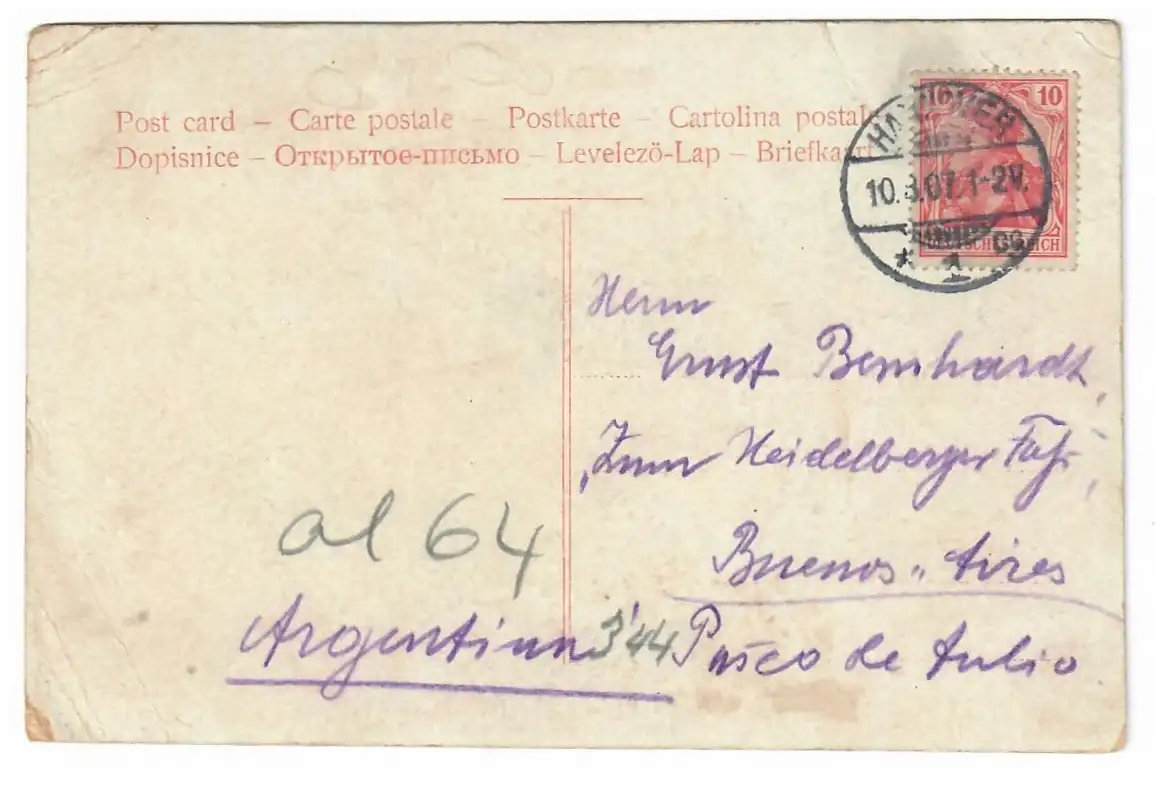 Post card – Carte postale – Postkarte – Cartolina postale
Dopisnice – Открытое-письмо – Levelező-Lap – Briefkaart
10 10
HANNOVER
10.8.07.1-2V.
* 1
DEUTSCHES REICH
Herrn
Ernst Bernhardt,
„Zum Heidelberger Faß"
Buenos-Aires
al 64
Argentinien 344 Paseo de Julio